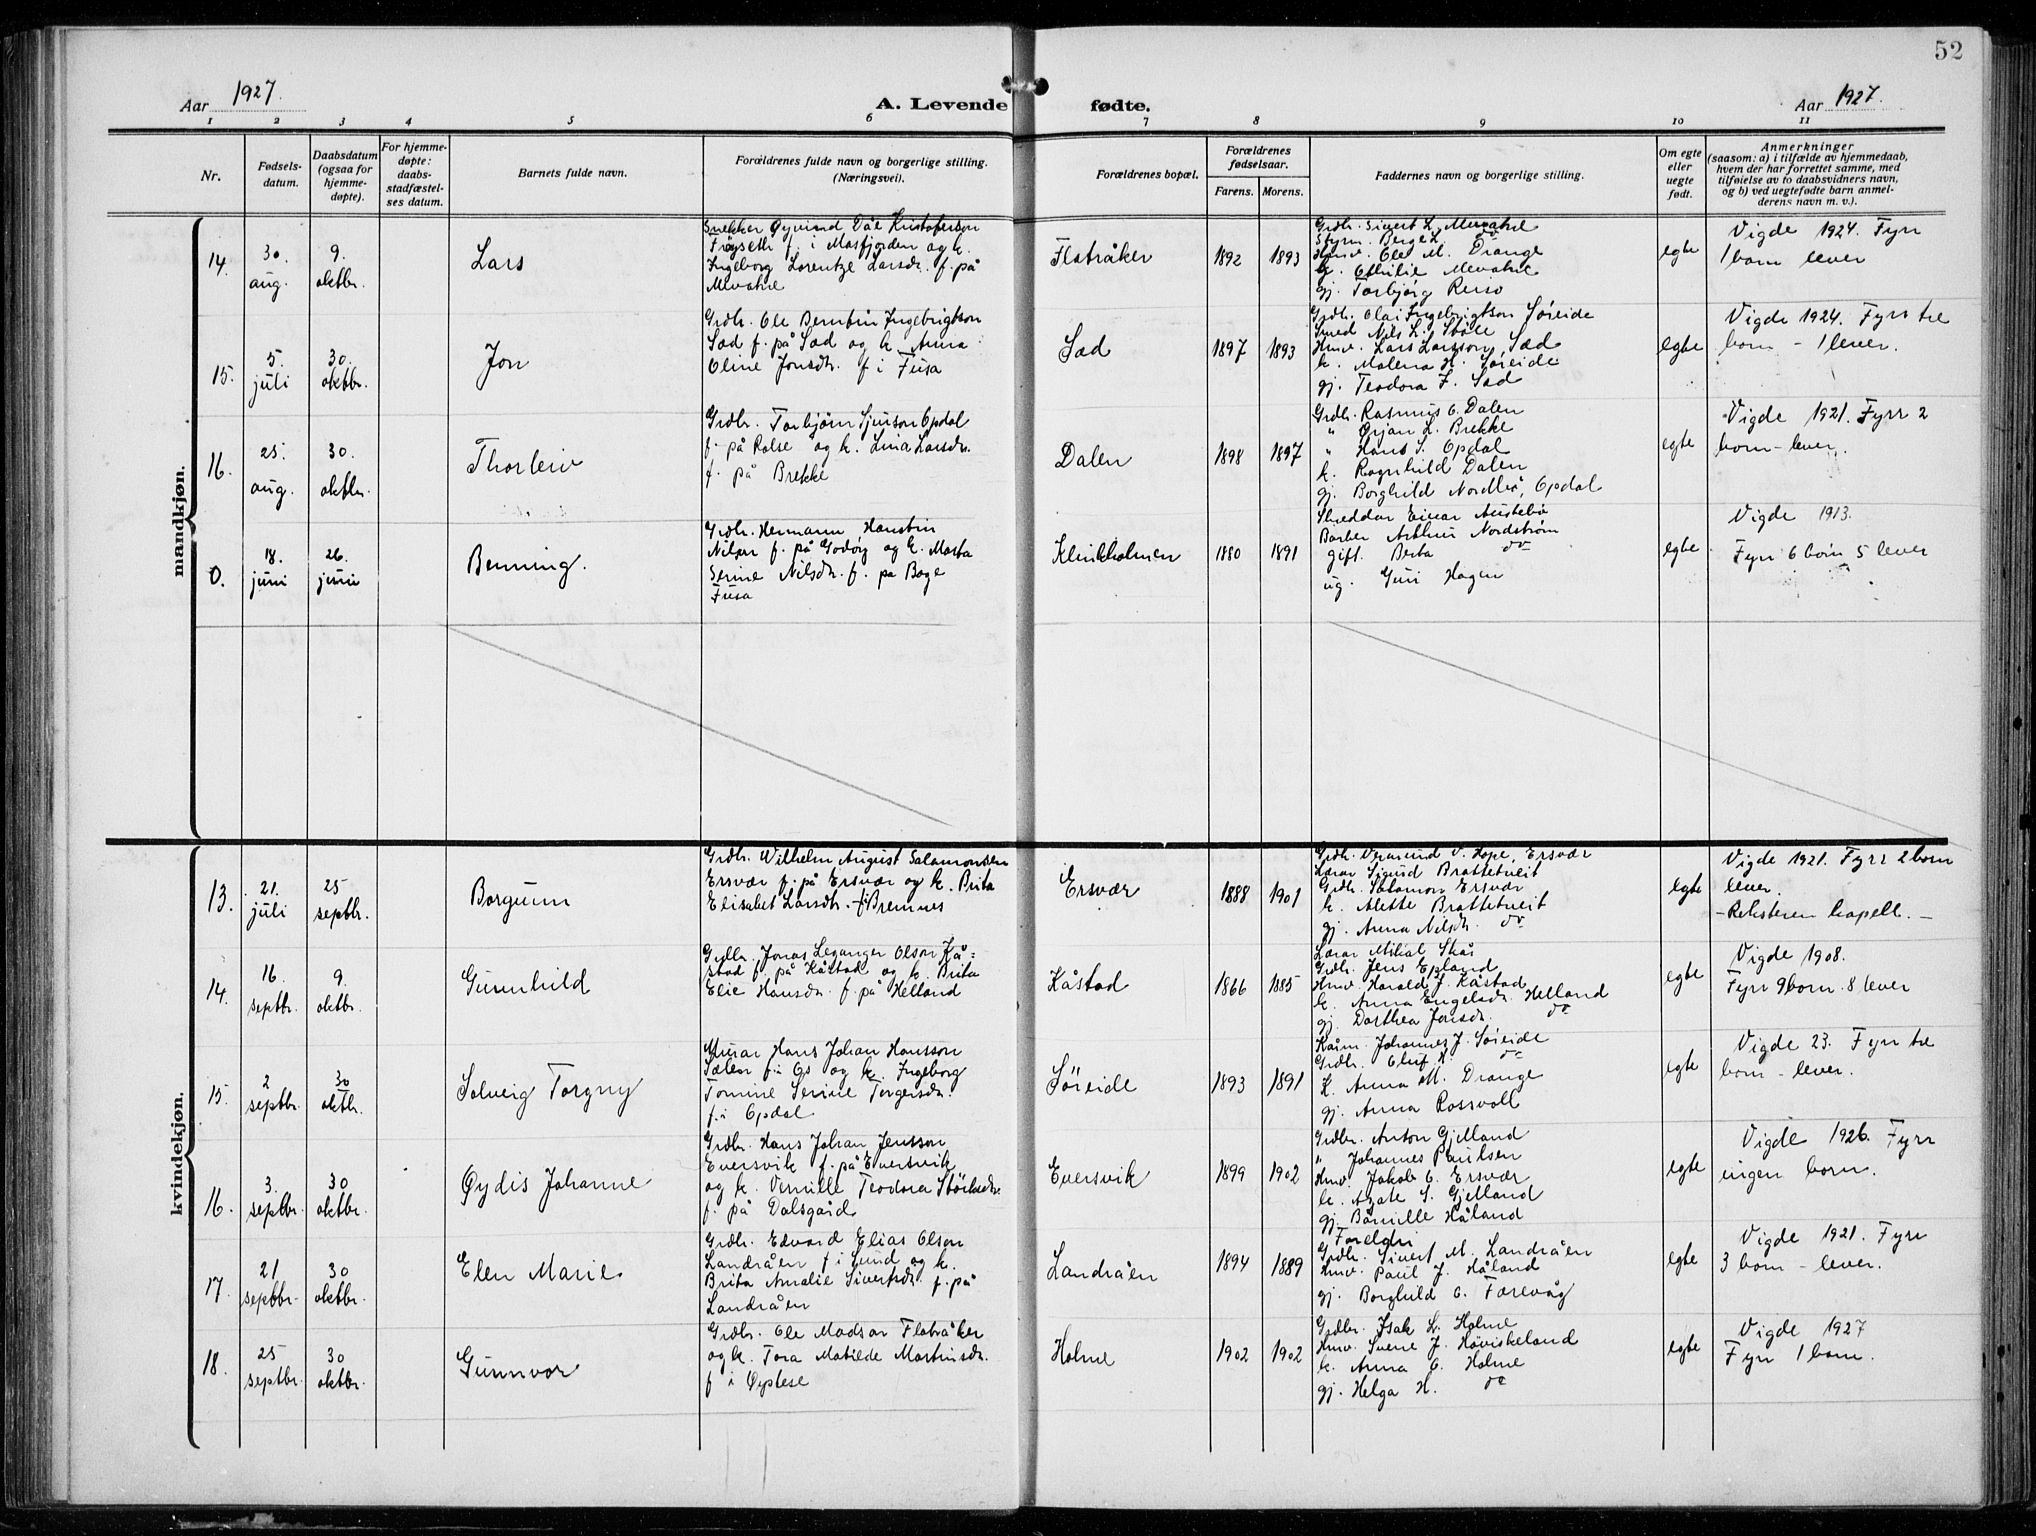 52
Aar 1927.
A. Levende fødte.
Aar 1927.
1 2 3 4 5 6 7 8 9 10 11
Nr.
Fødsels-
datum.
Daabsdatum
(ogsaa for
hjemme-
døpte).
For hjemme-
døpte:
daabs-
stadfæstel-
ses datum.
Barnets fulde navn.
Forældrenes fulde navn og borgerlige stilling.
(Næringsvei).
Forældrenes bopæl.
Forældrenes
fødselsaar.
Farens. Morens.
Faddernes navn og borgerlige stilling.
Om egte
eller
uegte
født.
Anmerkninger
(saasom: a) i tilfælde av hjemmedaab,
hvem der har forrettet samme, med
tilføielse av to daabsvidners navn,
og b) ved uegtefødte barn anmel-
derens navn m. v.).
mandkjøn.
14.
30.
aug.
9.
oktbr.
Lars
Snekker Øyvind Våe Kristoferson
Frøyseth f. i Masfjorden og k.
Ingeborg Lorentze Larsdr. f. på
Mevatne
Flatråker
1892
1893
Grdbr. Sivert L. Mevatne
Styrm. Berge L. do
Hmv. Ole M. Drange
k. Othilie Mevatne
gj. Torbjørg Rersø
egte
Vigde 1924. Fyrr
1 born lever
15.
5.
juli
30.
oktbr.
Jon
Grdbr. Ole Berntin Ingebrigtson
Sæd f. på Sæd og k. Anna
Oline Jonsdr. f i Fusa
Sæd
1897
1893
Grdbr. Olai Ingebrigtson Søreide
Smed Nils L. Støle
Hmv. Lars Larsson Sæd
k. Malena H. Søreide
gj. Teodora F. Sæd
egte
Vigde 1924. Fyrr tre
born - 1 lever.
16.
25.
aug.
30.
oktbr.
Thorleiv
Grdbr. Torbjörn Sjurson Opdal
f. på Rolse og k. Lina Larsdr.
f. på Brekke
Dalen
1898
1897
Grdbr. Rasmus O. Dalen
" Ørjan L. Brekke
" Hans S. Opdal
k. Ragnhild Dalen
gj. Borghild Nordbø, Opdal
egte
Vigde 1921. Fyrr 2
born - lever.
0.
18.
juni
26.
juni
Benning.
Grdbr. Hermann Hanstin
Nilsen f. på Godøy og k. Marta
Serine Nilsdr. f. på Boge
Fusa
Klinkholmen
1880
1891
Skreddar Einar Austebø
Barber Arthur Nordstrøm
gift. Berta do
ug. Guri Hagen
egte
Vigde 1913.
Fyrr 6 born 5 lever
kvindekjøn.
13.
21.
juli
25
septbr.
Borgunn
Grdbr. Wilhelm August Salamonsen
Ersvær f. på Ersvær og k. Brita
Elisabet Larsdr. f i Bremnes
Ersvær
1888
1901
Grdbr. Vermund V. Hope, Ersvær
Lærar Sigurd Brattetveit
Grdbr. Salamon Ersvær
k. Alette Brattetveit
gj. Anna Nilsdr. do
egte
Vigde 1921. Fyrr 2 born
lever.
- Reksteren kapell. -
14.
16.
septbr.
9.
oktbr.
Gunnhild
Grdbr. Jonas Leganger Olson Kå=
stad f. på Kåstad og k. Brita
Elie Hansdr. f. på Helland
Kåstad
1866
1885
Lærar Mikal Skår
Grdbr. Jens Epland
Hmv. Harald J. Kåstad
k. Anna Engelsdr. Helland
gj. Dorthea Jonsdr. do
egte
Vigde 1908.
Fyrr 9 born. 8 lever
15.
2
septbr.
30
oktb.
Solveig Torgny
Murar Hans Johan Hansson
Sælen f. i Os og k. Ingeborg
Tomine Serine Torgersdr.
f. i Opdal
Søreide
1893
1891
Kaim. Johannes J. Søreide
Grdbr. Oluf H. do
k. Anna M. Drange
gj. Anna Rossvoll
egte
Vigde 23. Fyrr tre
born - lever.
16.
3.
septbr.
30
oktbr.
Øydis Johanne
Grdbr. Hans Johan Jensson
Eversvik f. på Eversvik
og k. Vermille Teodora Størksdr.
f. på Dalsgård
Eversvik
1899
1902
Grdbr. Anton Gjelland
" Johannes Paulsen
Hmv. Jakob O. Ersvær
k. Agate S. Gjelland
gj. Bårnille Håland
egte
Vigde 1926. Fyrr
ingen born.
17.
21
septbr.
30
oktbr.
Elen Marie
Grdbr. Edvard Elias Olson
Landråen f i Sund og k.
Brita Amalie Sivertsdr. f. på
Landråen
Landråen
1894
1889
Foreldri
Grdbr. Sivert M. Landråen
Hmv. Paul J. Håland
gj. Borghild O. Færevåg
egte
Vigde 1921. Fyrr
3 born - lever.
18.
25
septbr.
30
oktbr.
Gunnvor
Grdbr. Ole Madsar Flatråker
og k. Tora Matilde Martinsdr.
f i Øystese
Holme
1902
1902
Grdbr. Isak L. Holme
Hmv. Sverre J. Høviskeland
k. Anna O. Holme
gj. Helga H. do
egte
Vigde 1927
Fyrr 1 born.